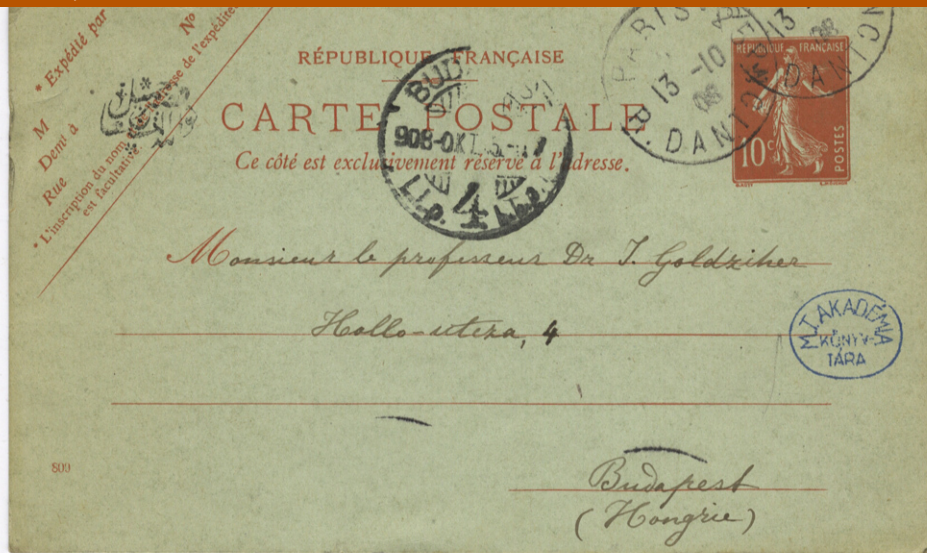 * Expédié par
M
Demt à
Rue
Nº
* L'inscription du nom adresse de l'expédite
est facultative
RÉPUBLIQUE FRANÇAISE
CARTE POSTALE
Ce côté est exclusivement réservé à l'adresse.
PARIS
13 -10
08
R. DANTON
13
DANT
BUD
908-OKT.
4
RÉPUBLIQUE FRANÇAISE
10c
POSTES
Monsieur le professeur Dr I. Goldziher
Hollo-utcza, 4
M.T. AKADÉMIA
KÖNYV-
TÁRA
809
Budapest
(Hongrie)